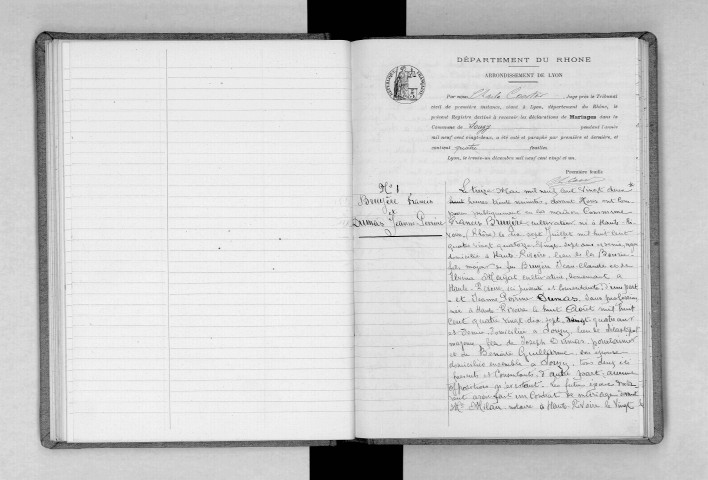 DÉPARTEMENT DU RHONE
ARRONDISSEMENT DE LYON
Par nous Juge près le Tribunal
civil de première instance, séant à Lyon, département du Rhône, le
présent Registre destiné à recevoir les déclarations de Mariages dans la
Commune de Souzy pendant l'année
mil neuf cent vingt-deux, a été coté et paraphé par première et dernière, et
contient quatre feuillets.
Lyon, le trente-un décembre mil neuf cent vingt et un.
Première feuille
N° 1
Bruyère Francis
et
Dumas Jeanne Perrine
Le treize Mai mil neuf cent vingt deux
huit heures trente minutes, devant Nous ont com
paru publiquement en la maison Commune
Francis Bruyère, cultivateur né à Haute-Ri
voire, (Rhône) le dix sept Juillet mil huit cent
quatre vingt quatorze vingt sept ans
domicilié à Haute-Rivoire, lieu de la
fils majeur de feu Bruyère Jean Claude et de
cultivatrice, demeurant à
Haute-Rivoire, ici présente et consentante, d'une part
et Jeanne Perrine Dumas, sans profession
née à Haute Rivoire le huit Août mil huit
cent quatre vingt dix sept vingt quatre ans
et demie, domiciliée à Souzy, lieu de
majeure, fille de Joseph Dumas,
et de Benoite Guillerme son épouse
domiciliés ensemble à Souzy, tous deux ici
présents et Consentants, d'autre part; aucune
opposition n'existant. Les futurs époux
ont avoir fait un Contrat de mariage devant
Me notaire à Haute-Rivoire le vingt